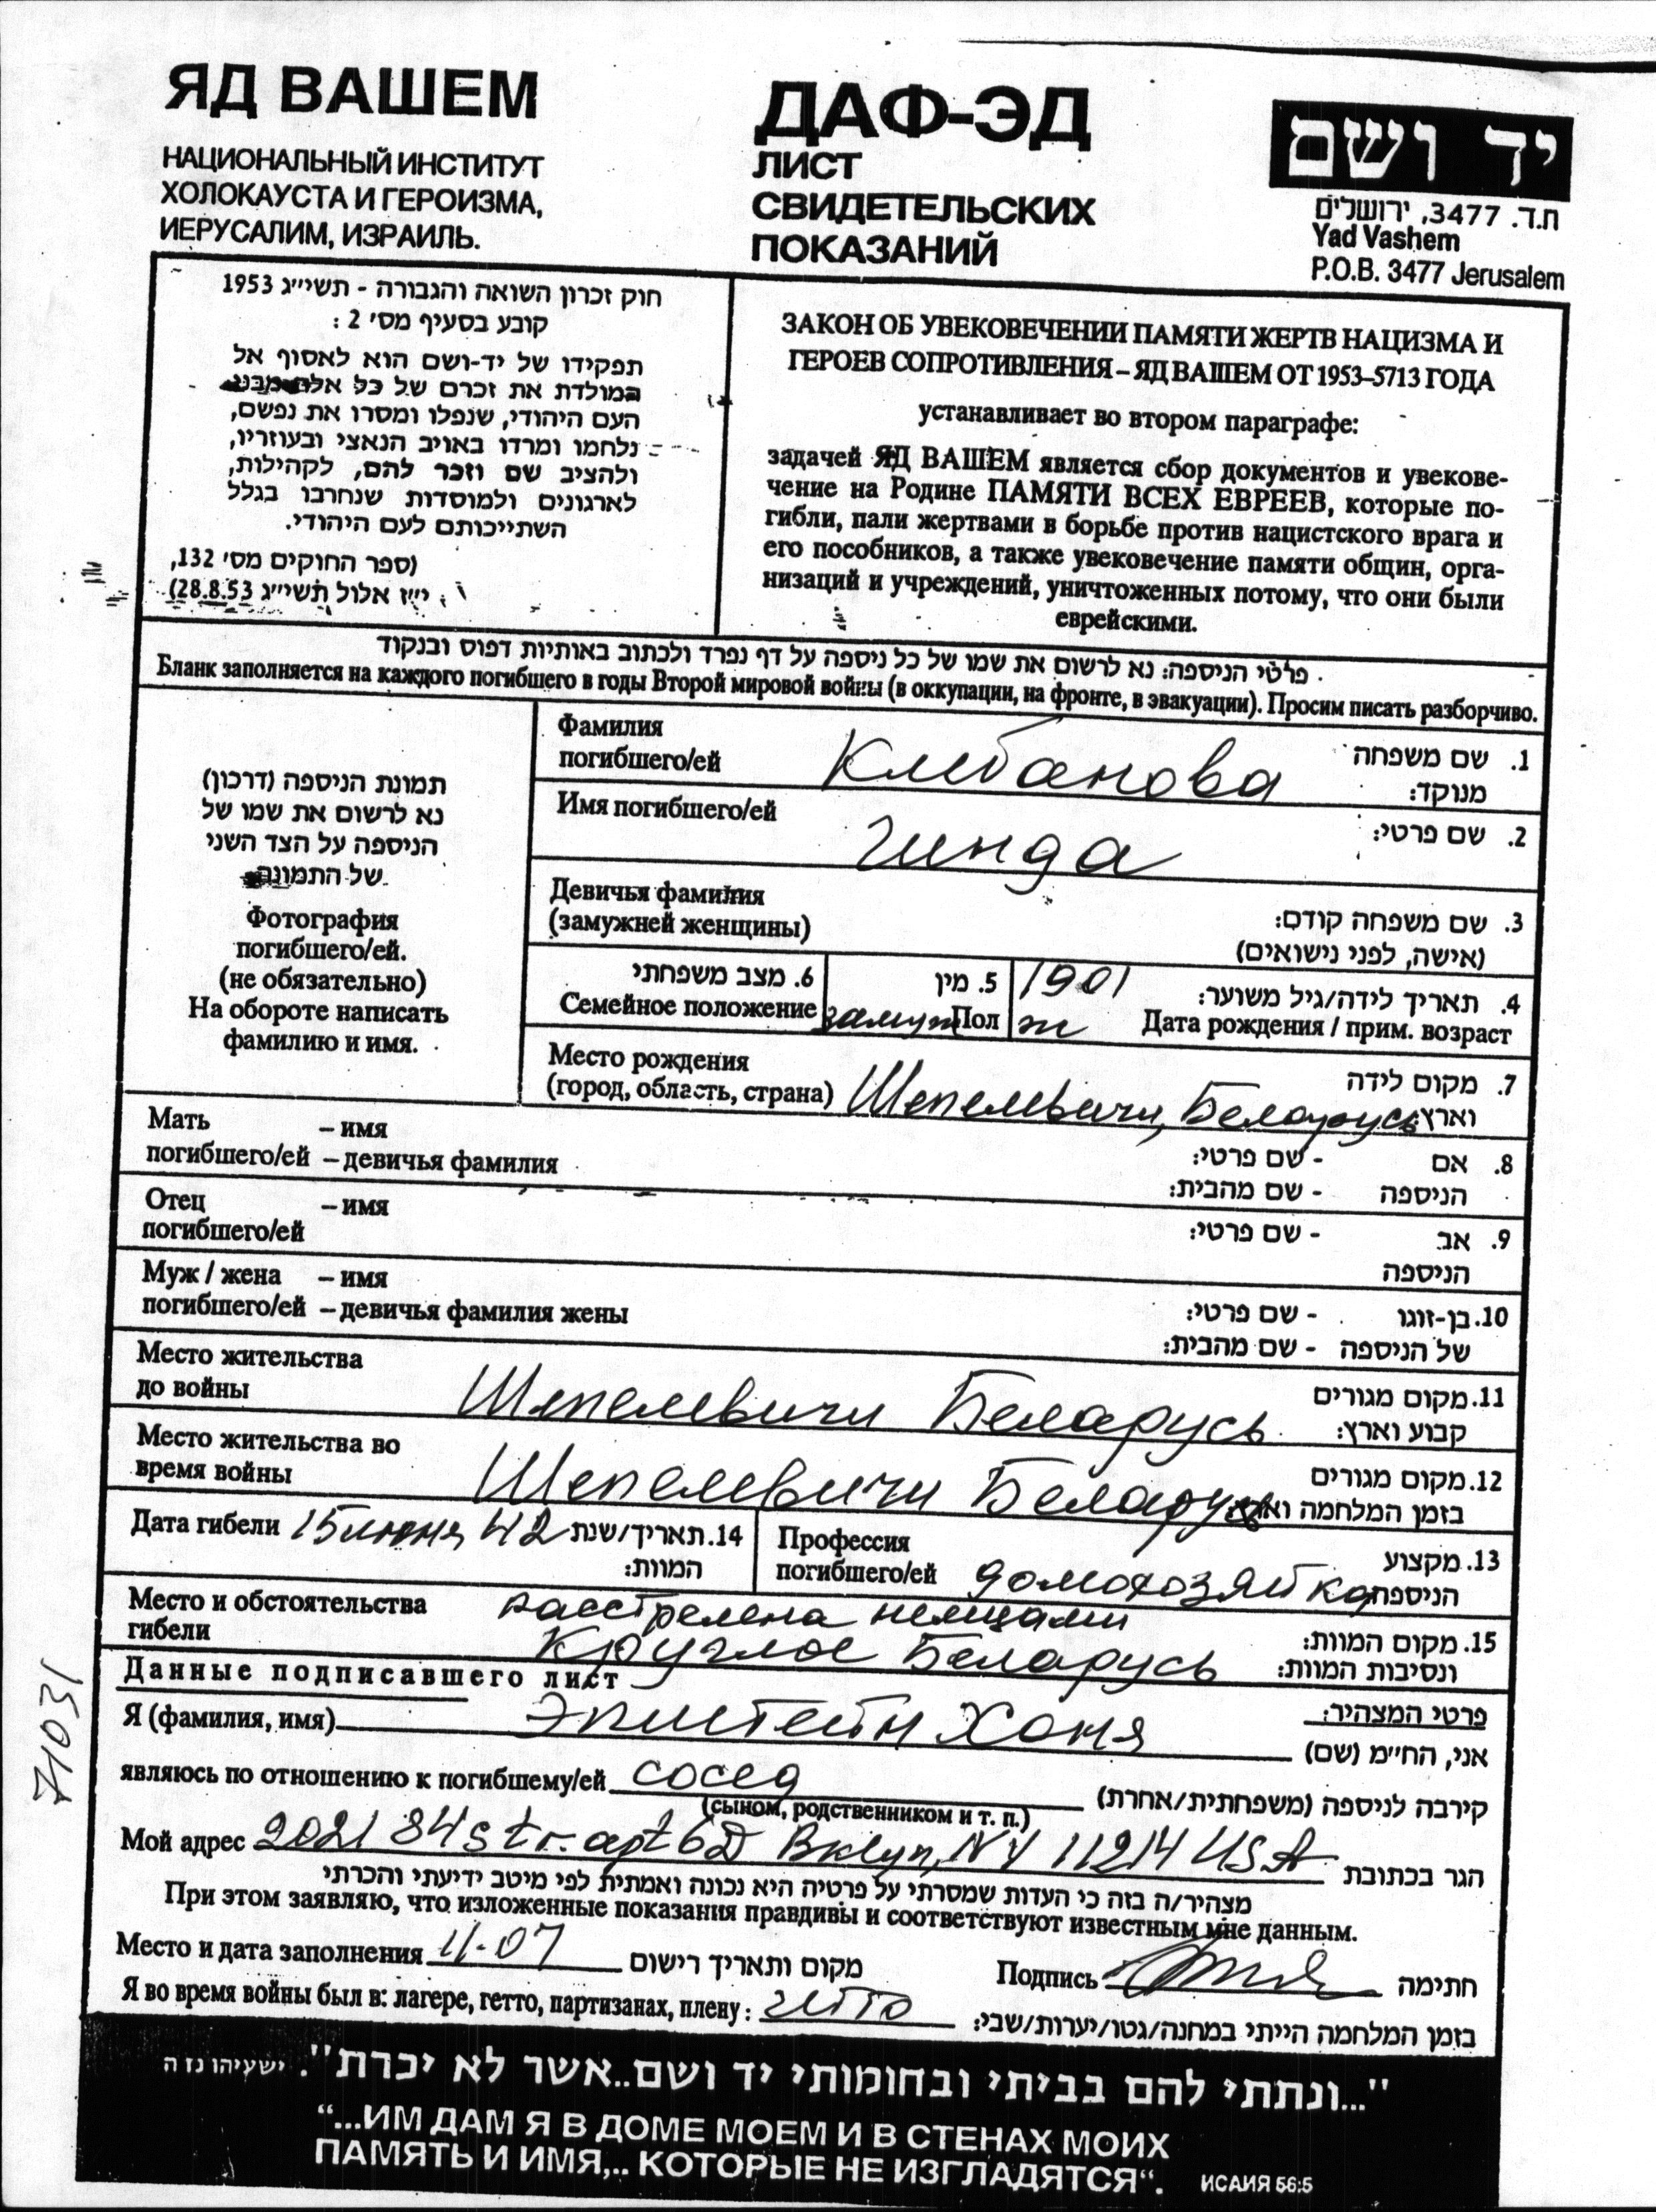 ЯД ВАШЕМ
НАЦИОНАЛЬНЫЙ ИНСТИТУТ
ХОЛОКАУСТА И ГЕРОИЗМА,
ИЕРУСАЛИМ, ИЗРАИЛЬ.
ДАФ-ЭД
ЛИСТ
СВИДЕТЕЛЬСКИХ
ПОКАЗАНИЙ
יד ושם
ת.ד. 3477, ירושלים
Yad Vashem
P.O.B. 3477 Jerusalem
חוק זכרון השואה והגבורה - תשי״ג 1953
קובע בסעיף מס׳ 2 :
תפקידו של יד-ושם הוא לאסוף אל
המולדת את זכרם של כל אלה מבני
העם היהודי, שנפלו ומסרו את נפשם,
נלחמו ומרדו באויב הנאצי ובעוזריו,
ולהציב שם וזכר להם, לקהילות,
לארגונים ולמוסדות שנחרבו בגלל
השתייכותם לעם היהודי.
(ספר החוקים מס׳ 132,
י״ז אלול תשי״ג 28.8.53)
ЗАКОН ОБ УВЕКОВЕЧЕНИИ ПАМЯТИ ЖЕРТВ НАЦИЗМА И
ГЕРОЕВ СОПРОТИВЛЕНИЯ – ЯД ВАШЕМ ОТ 1953–5713 ГОДА
устанавливает во втором параграфе:
задачей ЯД ВАШЕМ является сбор документов и увекове-
чение на Родине ПАМЯТИ ВСЕХ ЕВРЕЕВ, которые по-
гибли, пали жертвами в борьбе против нацистского врага и
его пособников, а также увековечение памяти общин, орга-
низаций и учреждений, уничтоженных потому, что они были
еврейскими.
פרטי הניספה: נא לרשום את שמו של כל ניספה על דף נפרד ולכתוב באותיות דפוס ובנקוד
Бланк заполняется на каждого погибшего в годы Второй мировой войны (в оккупации, на фронте, в эвакуации). Просим писать разборчиво.
תמונת הניספה (דרכון)
נא לרשום את שמו של
הניספה על הצד השני
של התמונה
Фотография
погибшего/ей.
(не обязательно)
На обороте написать
фамилию и имя.
Фамилия
погибшего/ей Клебанова
1. שם משפחה
מנוקד:
Имя погибшего/ей Гинда 2. שם פרטי:
Девичья фамилия
(замужней женщины)
3. שם משפחה קודם:
(אישה, לפני נישואים)
6. מצב משפחתי
Семейное положение замуж
5. מין
Пол ж
1901 4. תאריך לידה/גיל משוער:
Дата рождения / прим. возраст
Место рождения
(город, область, страна) Шепелевичи, Беларусь
7. מקום לידה
וארץ:
Мать – имя
погибшего/ей – девичья фамилия
8. אם - שם פרטי:
הניספה - שם מהבית:
Отец – имя
погибшего/ей
9. אב - שם פרטי:
הניספה
Муж / жена – имя
погибшего/ей – девичья фамилия жены
10. בן-זוגו - שם פרטי:
של הניספה - שם מהבית:
Место жительства
до войны Шепелевичи Беларусь
11. מקום מגורים
קבוע וארץ:
Место жительства во
время войны Шепелевичи Беларусь
12. מקום מגורים
בזמן המלחמה וארץ:
Дата гибели 15 июня 42 14. תאריך/שנת
המוות:
Профессия
погибшего/ей домохозяйка
13. מקצוע
הניספה
Место и обстоятельства
гибели
расстрелена немцами
Круглое Беларусь
15. מקום המוות:
ונסיבות המוות:
Данные подписавшего лист
פרטי המצהיר:
Я (фамилия, имя) Эпштейн Хоня אני, הח״מ (שם)
являюсь по отношению к погибшему/ей сосед קירבה לניספה (משפחתית/אחרת)
(сыном, родственником и т. п.)
Мой адрес 2021 84 str. apt 6D Bklyn, NY 11214 USA הגר בכתובת
מצהיר/ה בזה כי העדות שמסרתי על פרטיה היא נכונה ואמתית לפי מיטב ידיעתי והכרתי
При этом заявляю, что изложенные показания правдивы и соответствуют известным мне данным.
Место и дата заполнения 11-07 מקום ותאריך רישום Подпись חתימה
Я во время войны был в: лагере, гетто, партизанах, плену: гетто בזמן המלחמה הייתי במחנה/גטו/יערות/שבי:
"...ונתתי להם בביתי ובחומותי יד ושם..אשר לא יכרת". ישעיהו נז ה
“...ИМ ДАМ Я В ДОМЕ МОЕМ И В СТЕНАХ МОИХ
ПАМЯТЬ И ИМЯ,.. КОТОРЫЕ НЕ ИЗГЛАДЯТСЯ“. ИСАИЯ 56:5